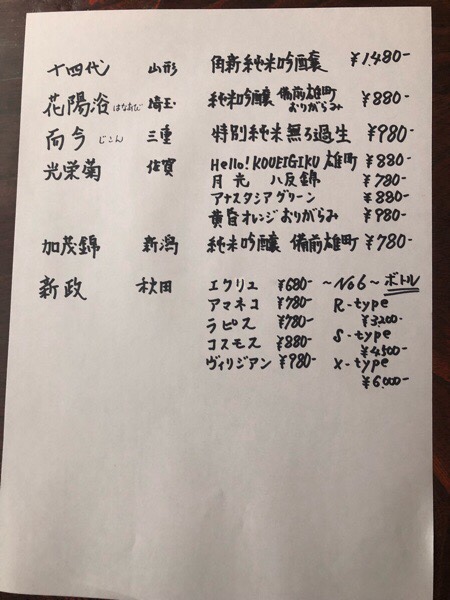 十四代 山形 角新純米吟醸 ¥1,480-
花陽浴 はなあび 埼玉 純米吟醸 備前雄町 おりがらみ ¥880-
而今 じこん 三重 特別純米 無ろ過生 ¥980-
光栄菊 佐賀 Hello! KOUEIGIKU 雄町 ¥880-
月光 八反錦 ¥780-
アナスタシアグリーン ¥880-
黄昏オレンジおりがらみ ¥980-
加茂錦 新潟 純米吟醸 備前雄町 ¥780-
新政 秋田 エクリュ ¥680- ~No6~ボトル
アマネコ ¥780- R-type
¥3,200-
ラピス ¥780-
コスモス ¥880- S-type
¥4,500-
ヴィリジアン ¥980- X-type
¥6,000-